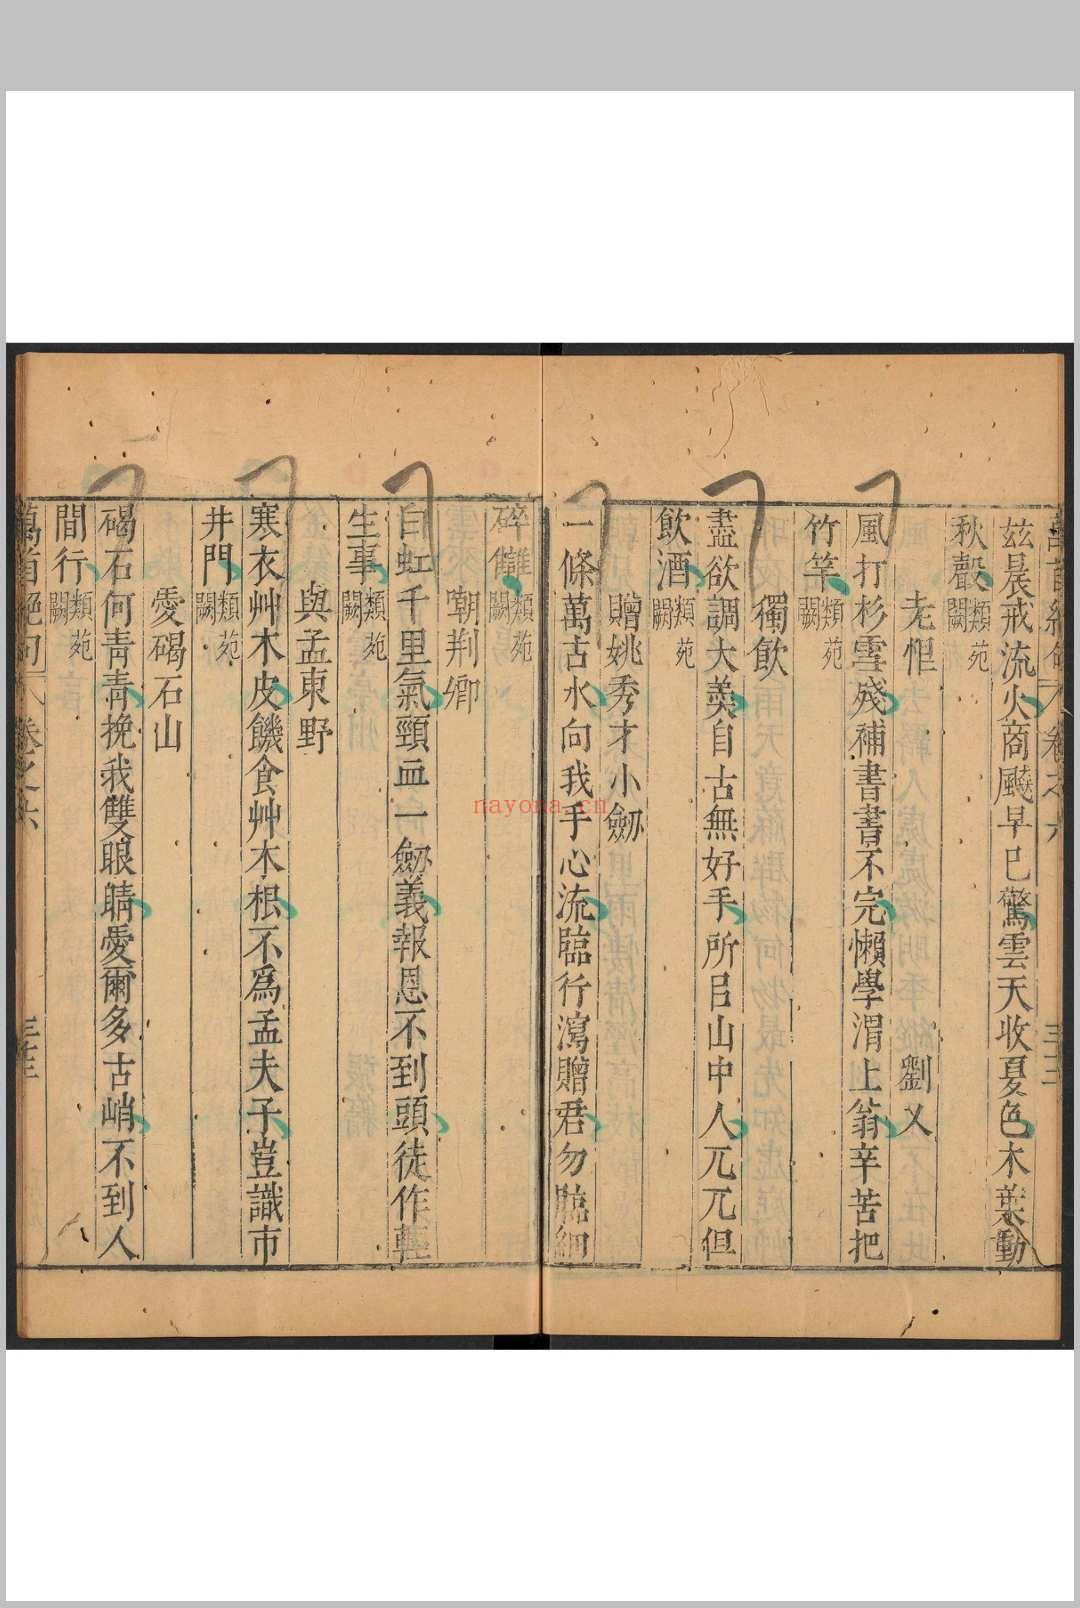 茲晨戒流火商飈早已驚雲天收夏色木葉動
秋聲類苑闕
老恇 劉叉
風打杉雪殘補書書不完懶學渭上翁辛苦把
竹竿類苑闕
獨飲
盡欲調大羹自古無好手所㠯山中人兀兀但
飲酒類苑闕
贈姚秀才小劒
一條萬古水向我手心流臨行瀉贈君勿臨細
碎讎類苑闕
嘲荆卿
白虹千里氣頸血一劒義報恩不到頭徒作輕
生事類苑闕
與孟東野
寒衣艸木皮饑食艸木根不爲孟夫子豈識市
井門類苑闕
愛碣石山
碣石何靑靑挽我雙眼睛愛爾多古峭不到人
間行類苑闕
萬首絕句 卷之六
nayona.cn